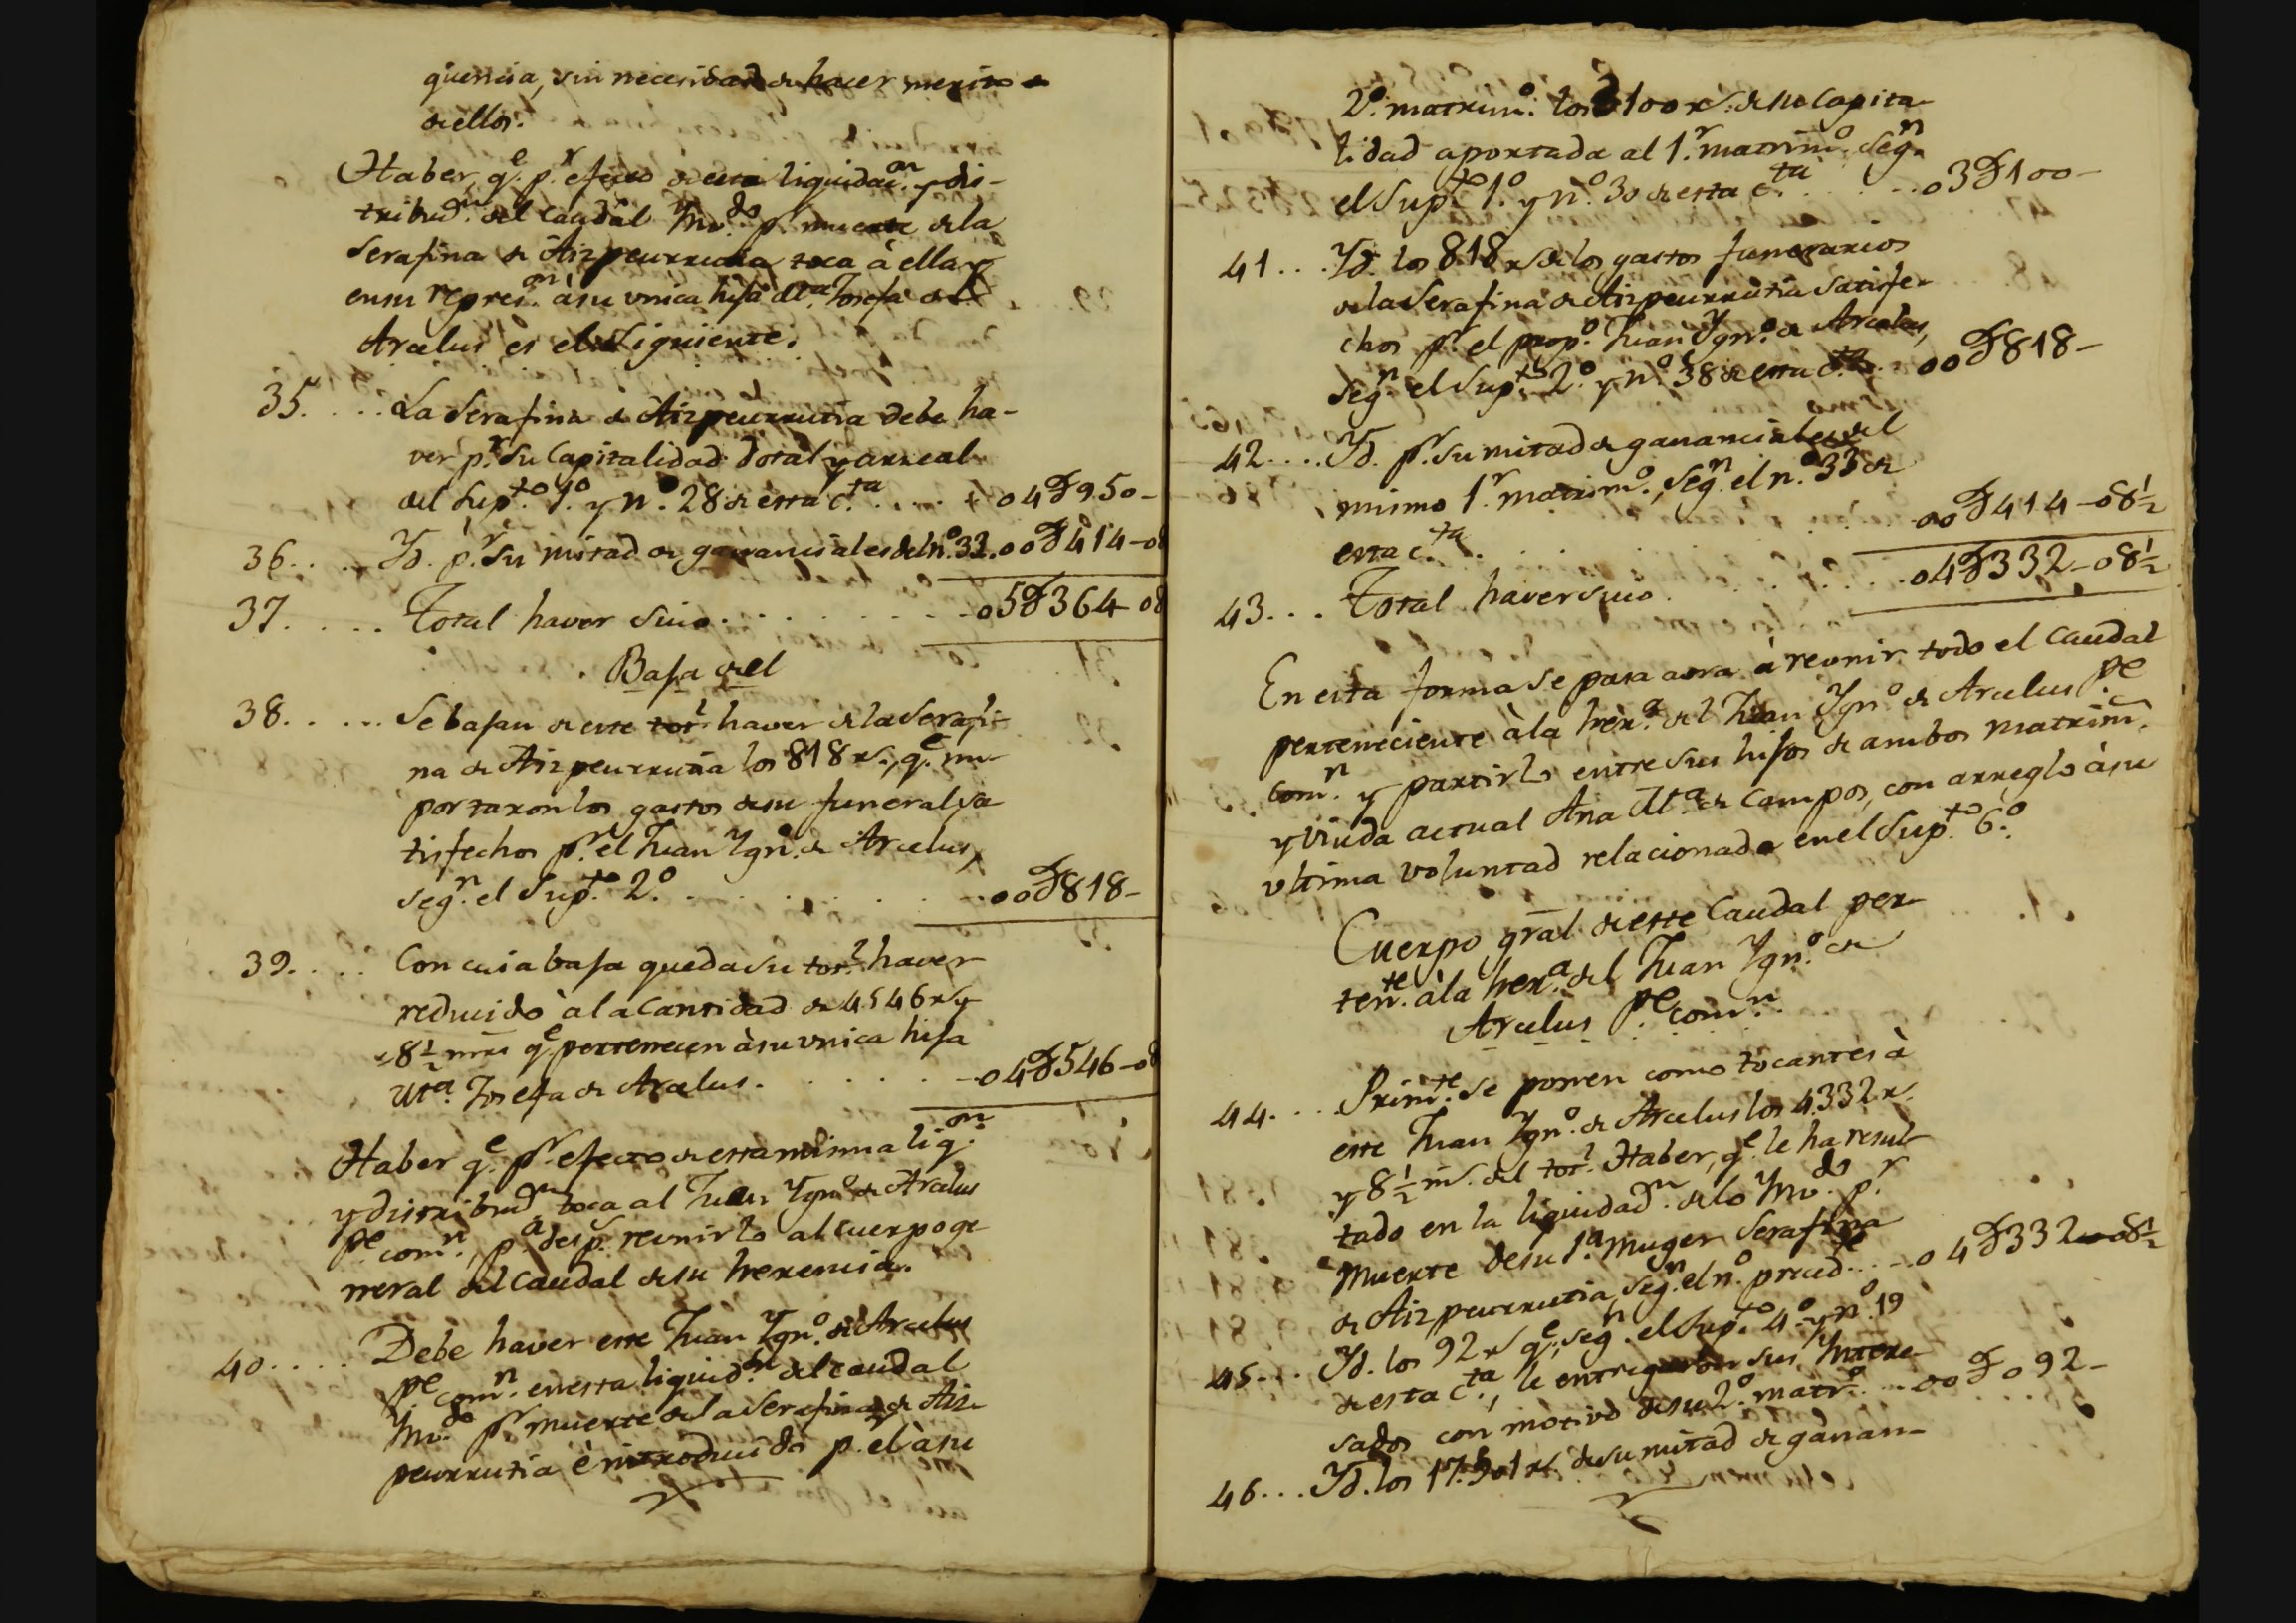 quencia, sin necesidad de hacer merito
de ellos.
Haber, q.e p.r efecto de esta liquidac.on y dis-
tribuc.n del Caudal Ynv.do p.r muerte de la
Serafina de Aizpeurrutia toca à ella y
en su repres.on à su unica hija M.a Josefa de
Arcelus es el Siguiente.
35. . . . La Serafina de Aizpeurrutia Debe ha-
ver p.r Su Capitalidad Dotal y arreal
del Sup.to 1.o y n.o 28 de esta c.ta . . . . 04 U 950-
36. . . . Yd. p.r Su mitad de gananciales del n.o 33. 00 U 414-08
37. . . . Total haver Suio . . . . . . . . 05 U 364-08
Baja de el
38. . . . . Se bajan de este tot.l haver de la Serafi-
na de Aizpeurrutia los 818 r.s, q.e im-
portaron los gastos de su funeral sa-
tisfechos p.r el Juan Ygn.o de Arcelus,
seg.n el Sup.to 2.o . . . . . . . 00 U 818-
39. . . . Con cuia baja queda su tot.l haver
reducido à la Cantidad de 4546 r.s y
8 1/2 mrs q.e pertenecen à su unica hija
M.a Josefa de Arcelus . . . . . . 04 U 546-08
Haber q.e p.r efecto de esta misma liq.on
y distribuc.n toca al Juan Ygn.o de Arcelus
P.e com.n, p.a desp.s reunirlo al cuerpo ge
neral del Caudal de su herencia.
40. . . . Debe haver este Juan Ygn.o de Arcelus
P.e com.n en esta liquid.on del caudal
Ynv.do p.r muerte de la Serafina de Aiz-
peurrutia è introducido p.r el à su
2.o matrim.o los 3100 r.s de su Capita-
lidad aportada al 1.r matrim.o Seg.n
el Sup.to 1.o y n.o 30 de esta c.ta . . . . 03 U 100-
41 . . . Yd. los 818 r.s de los gastos funerarios
de la Serafina de Aizpeurrutia Satisfe-
chos p.r el prop.o Juan Ygn.o de Arcelus,
Seg.n el Sup.to 2.o y n.o 38 de esta c.ta . . 00 U 818-
42. . . . Yd. p.r Su mitad de gananciales del
mismo 1.r matrim.o, Seg.n el n.o 33 de
esta c.ta . . . . . . . . 00 U 414-08 1/2
43. . . Total haver Suio . . . . . . . 04 U 332-08 1/2
En esta forma Se pasa aora à reunir todo el Caudal
perteneciente à la her.a del Juan Ygn.o de Arcelus P.e
Com.n y partirlo entre Sus hijos de ambos matrim.s
y Viuda actual Ana M.a de Campos, con arreglo à su
ultima voluntad relacionada en el Sup.to 6.o
Cuerpo gral de este Caudal per-
ten.te à la her.a del Juan Ygn.o de
Arcelus P.e com.n
44. . . . Prim.te Se ponen como tocantes à
este Juan Ygn.o de Arcelus los 4332 r.s
y 8 1/2 m.s del tot.l Haber, q.e le ha resul-
tado en la liquidac.n de lo Ynv.do p.r
Muerte de su 1.a Muger Serafina
de Aizpeurrutia, Seg.n el n.o preced.te . . 04 U 332-08 1/2
45. . . Yd. los 92 r.s q.e, seg.n el Sup.to 4.o y n.o 19
de esta c.ta, le entregaron sus Yntere-
sados con motivo de su 2.o matr.o . . . 00 U 092-
46. . . Yd. los 17.901 r.s de su mitad de ganan-